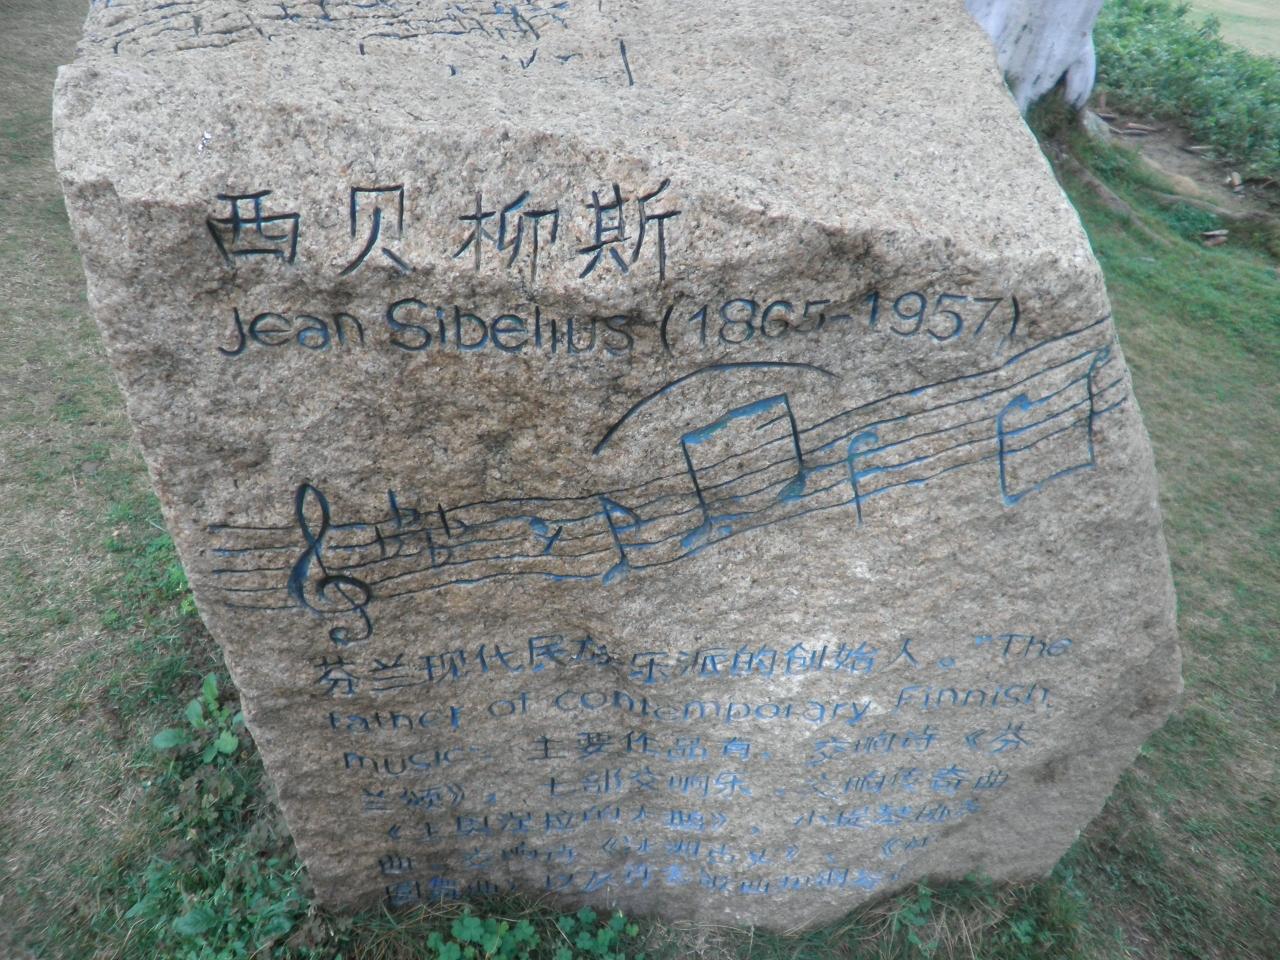 西贝柳斯
Jean Sibelius (1865-1957)
芬兰现代民族乐派的创始人。"The
father of contemporary Finnish
music". 主要作品有，交响诗《芬
兰颂》，七部交响乐、交响传奇曲
的天鹅》，小提琴协奏
曲、交响诗
圆舞曲》以及